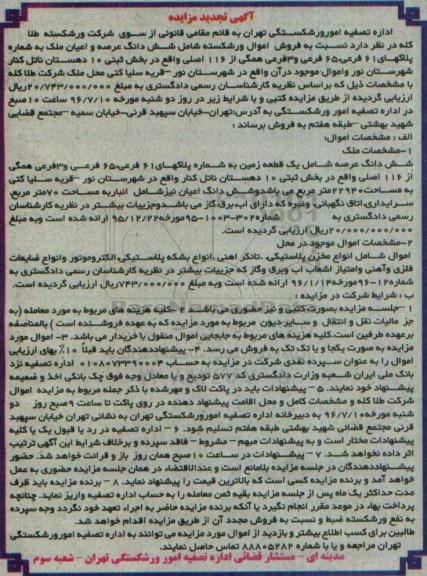 آگهی تجدید مزایده
اداره تصفیه امورورشکستگی تهران به قائم مقامی قانونی از سوی شرکت ورشکسته طلا
کله در نظر دارد نسبت به فروش اموال ورشکسته شامل شش دانگ عرصه و اعیان ملک به شماره
پلاکهای ۶۱ فرعی،۶۵ فرعی و۳فرعی همگی از ۱۱۶ اصلی واقع در بخش ثبتی ۱۰ دهستان ناتل کنار
شهرستان نور واموال موجود درآن واقع در شهرستان نور –قریه سلیا کتی محل ملک شرکت طلا کله
با مشخصات ذیل که براساس نظریه کارشناسان رسمی دادگستری به مبلغ ۲۰/۷۴۳/۰۰۰/۰۰۰ریال
ارزیابی گردیده از طریق مزایده کتبی و با شرایط زیر در روز دو شنبه مورخه ۹۶/۷/۱۰ ساعت ۱۰صبح
در اداره تصفیه امور ورشکستگی به آدرس:تهران-خیابان سپهبد قرنی-خیابان سمیه –مجتمع قضایی
شهید بهشتی –طبقه هفتم به فروش برساند :
الف : مشخصات اموال:
۱-مشخصات ملک
شش دانگ عرصه شامل یک قطعه زمین به شماره پلاکهای۶۱ فرعی،۶۵ فرعی و۳فرعی همگی
از ۱۱۶ اصلی واقع در بخش ثبتی ۱۰ دهستان ناتل کنار واقع در شهرستان نور –قریه سلیا کتی
به مساحت۲۲۹۴۰متر مربع می باشدوشش دانگ اعیان نیزشامل انباربه مساحت ۷۰متر مربع،
سرایداری، اتاق نگهبانی، وغیره که دارای آب،برق،گاز می باشدوجزییات بیشتر در نظریه کارشناسان
رسمی دادگستری به شماره۳۰۲-۱۰۰۳-۹۵مورخه۹۵/۱۲/۲۲ ارائه شده است وبه مبلغ
۲۰/۰۰۰/۰۰۰/۰۰۰ریال ارزیابی گردیده است.
۲-مشخصات اموال موجود در محل
اموال شامل انواع مخزن پلاستیکی ،تانکر اهنی ،انواع بشکه پلاستیکی،الکتروموتور وانواع ضایعات
فلزی وآهنی وامتیاز اشعاب اب وبرق وگاز که جزییات بیشتر در نظریه کارشناسان رسمی دادگستری به
شماره۱۲-۹۶مورخه۹۶/۱/۱۴ ارائه شده است وبه مبلغ ۷۴۳/۰۰۰/۰۰۰ریال ارزیابی گردیده است.
ب : شرایط شرکت در مزایده :
۱-جلسه مزایده بصورت کتبی و نیز حضوری می باشد. ۲ -کلیه هزینه های مربوط به مورد معامله (به
جز مالیات نقل و انتقال و سایر دیون مربوط به مورد مزایده که به عهده فروشنده است ) بالمناصفه
برعهده طرفین است.کلیه هزینه های مربوط به جابجایی اموال منقول با خریدار می باشد. ۳- اموال مورد
مزایده به صورت یکجا و یا تک تک به فروش می رسد. ۴- پیشنهاددهندگان باید قبلاً ۱۰٪ بهای ارزیابی
اموال را به عنوان سپرده نقدی شرکت در مزایده به حساب ۰۱۰۸۰۷۳۳۹۰۰۰۴ اداره تصفیه نزد
بانک ملی ایران شعبه وزارت دادگستری کد ۵۷۷ تودیع و یا معادل وجه فوق چک بانکی اخذ و ضمیمه
پیشنهاد خود نمایند. ۵ – پیشنهادات باید در پاکت لاک و مهرشده با ذکر جمله مربوط به مزایده اموال
شرکت طلا کله و مشخصات کامل و محل اقامت پیشنهاد دهنده در روی پاکت تا ساعت ۹صبح روز دو
شنبه مورخه۹۶/۷/۱۰ به دبیرخانه اداره تصفیه امورورشکستگی تهران به نشانی تهران خیابان سپهبد
قرنی مجتمع قضائی شهید بهشتی طبقه هفتم تسلیم شود. ۶ – اداره تصفیه در رد یا قبول یک یا کلیه
پیشنهادات مختار است و به پیشنهادات مبهم – مشروط – فاقد سپرده و برخلاف شرایط این آگهی ترتیب
اثر داده نخواهد شد. ۷ – پیشنهادات در ساعت ۱۰ صبح همان روز باز و قرائت خواهد شد. حضور
پیشنهاددهندگان در جلسه مزایده بلامانع است و عندالاقتضاء در همان جلسه مزایده حضوری به عمل
خواهد آمد و برنده مزایده کسی است که بالاترین قیمت را پیشنهاد نماید. ۸ – برنده مزایده باید ظرف
مدت حداکثر یک ماه پس از جلسه مزایده بقیه ثمن معامله را به حساب اداره تصفیه واریز نماید. چنانچه
پرداخت بهاء در موعد مقرر انجام نگیرد یا آنکه برنده مزایده حاضر به اجراء تعهد خود نگردد وجه سپرده
به نفع ورشکسته ضبط و نسبت به فروش مجدد آن از طریق مزایده اقدام خواهد شد.
طالبین برای کسب اطلاع بیشتر و بازدید از اموال مورد مزایده می توانند به اداره تصفیه امورورشکستگی
تهران مراجعه و یا با شماره ۸۸۸۰۵۲۸۲ تماس حاصل نمایند.
مدینه ای – مستشار قضائی اداره تصفیه امور ورشکستگی تهران – شعبه سوم